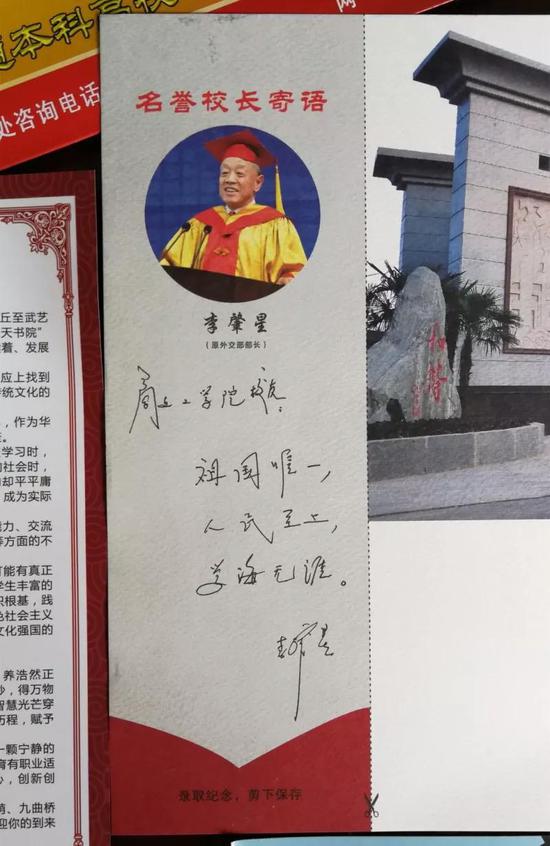 通本科高校
处咨询电话
网
名誉校长寄语
李肇星
（原外交部部长）
商丘工学院校友：
祖国唯一，
人民至上，
学海无涯。
李肇星
录取纪念，剪下保存
丘至武艺
天书院"
着、发展
应上找到
传统文化的
，作为华
学习时，
的社会时，
却平平庸
成为实际
力、交流
等方面的不
可能有真正
学生丰富的
识根基，践
色社会主义
文化强国的
养浩然正
沙，得万物
智慧光芒穿
历程，赋予
一颗宁静的
育有职业适
心，创新创
萌、九曲桥
迎你的到来